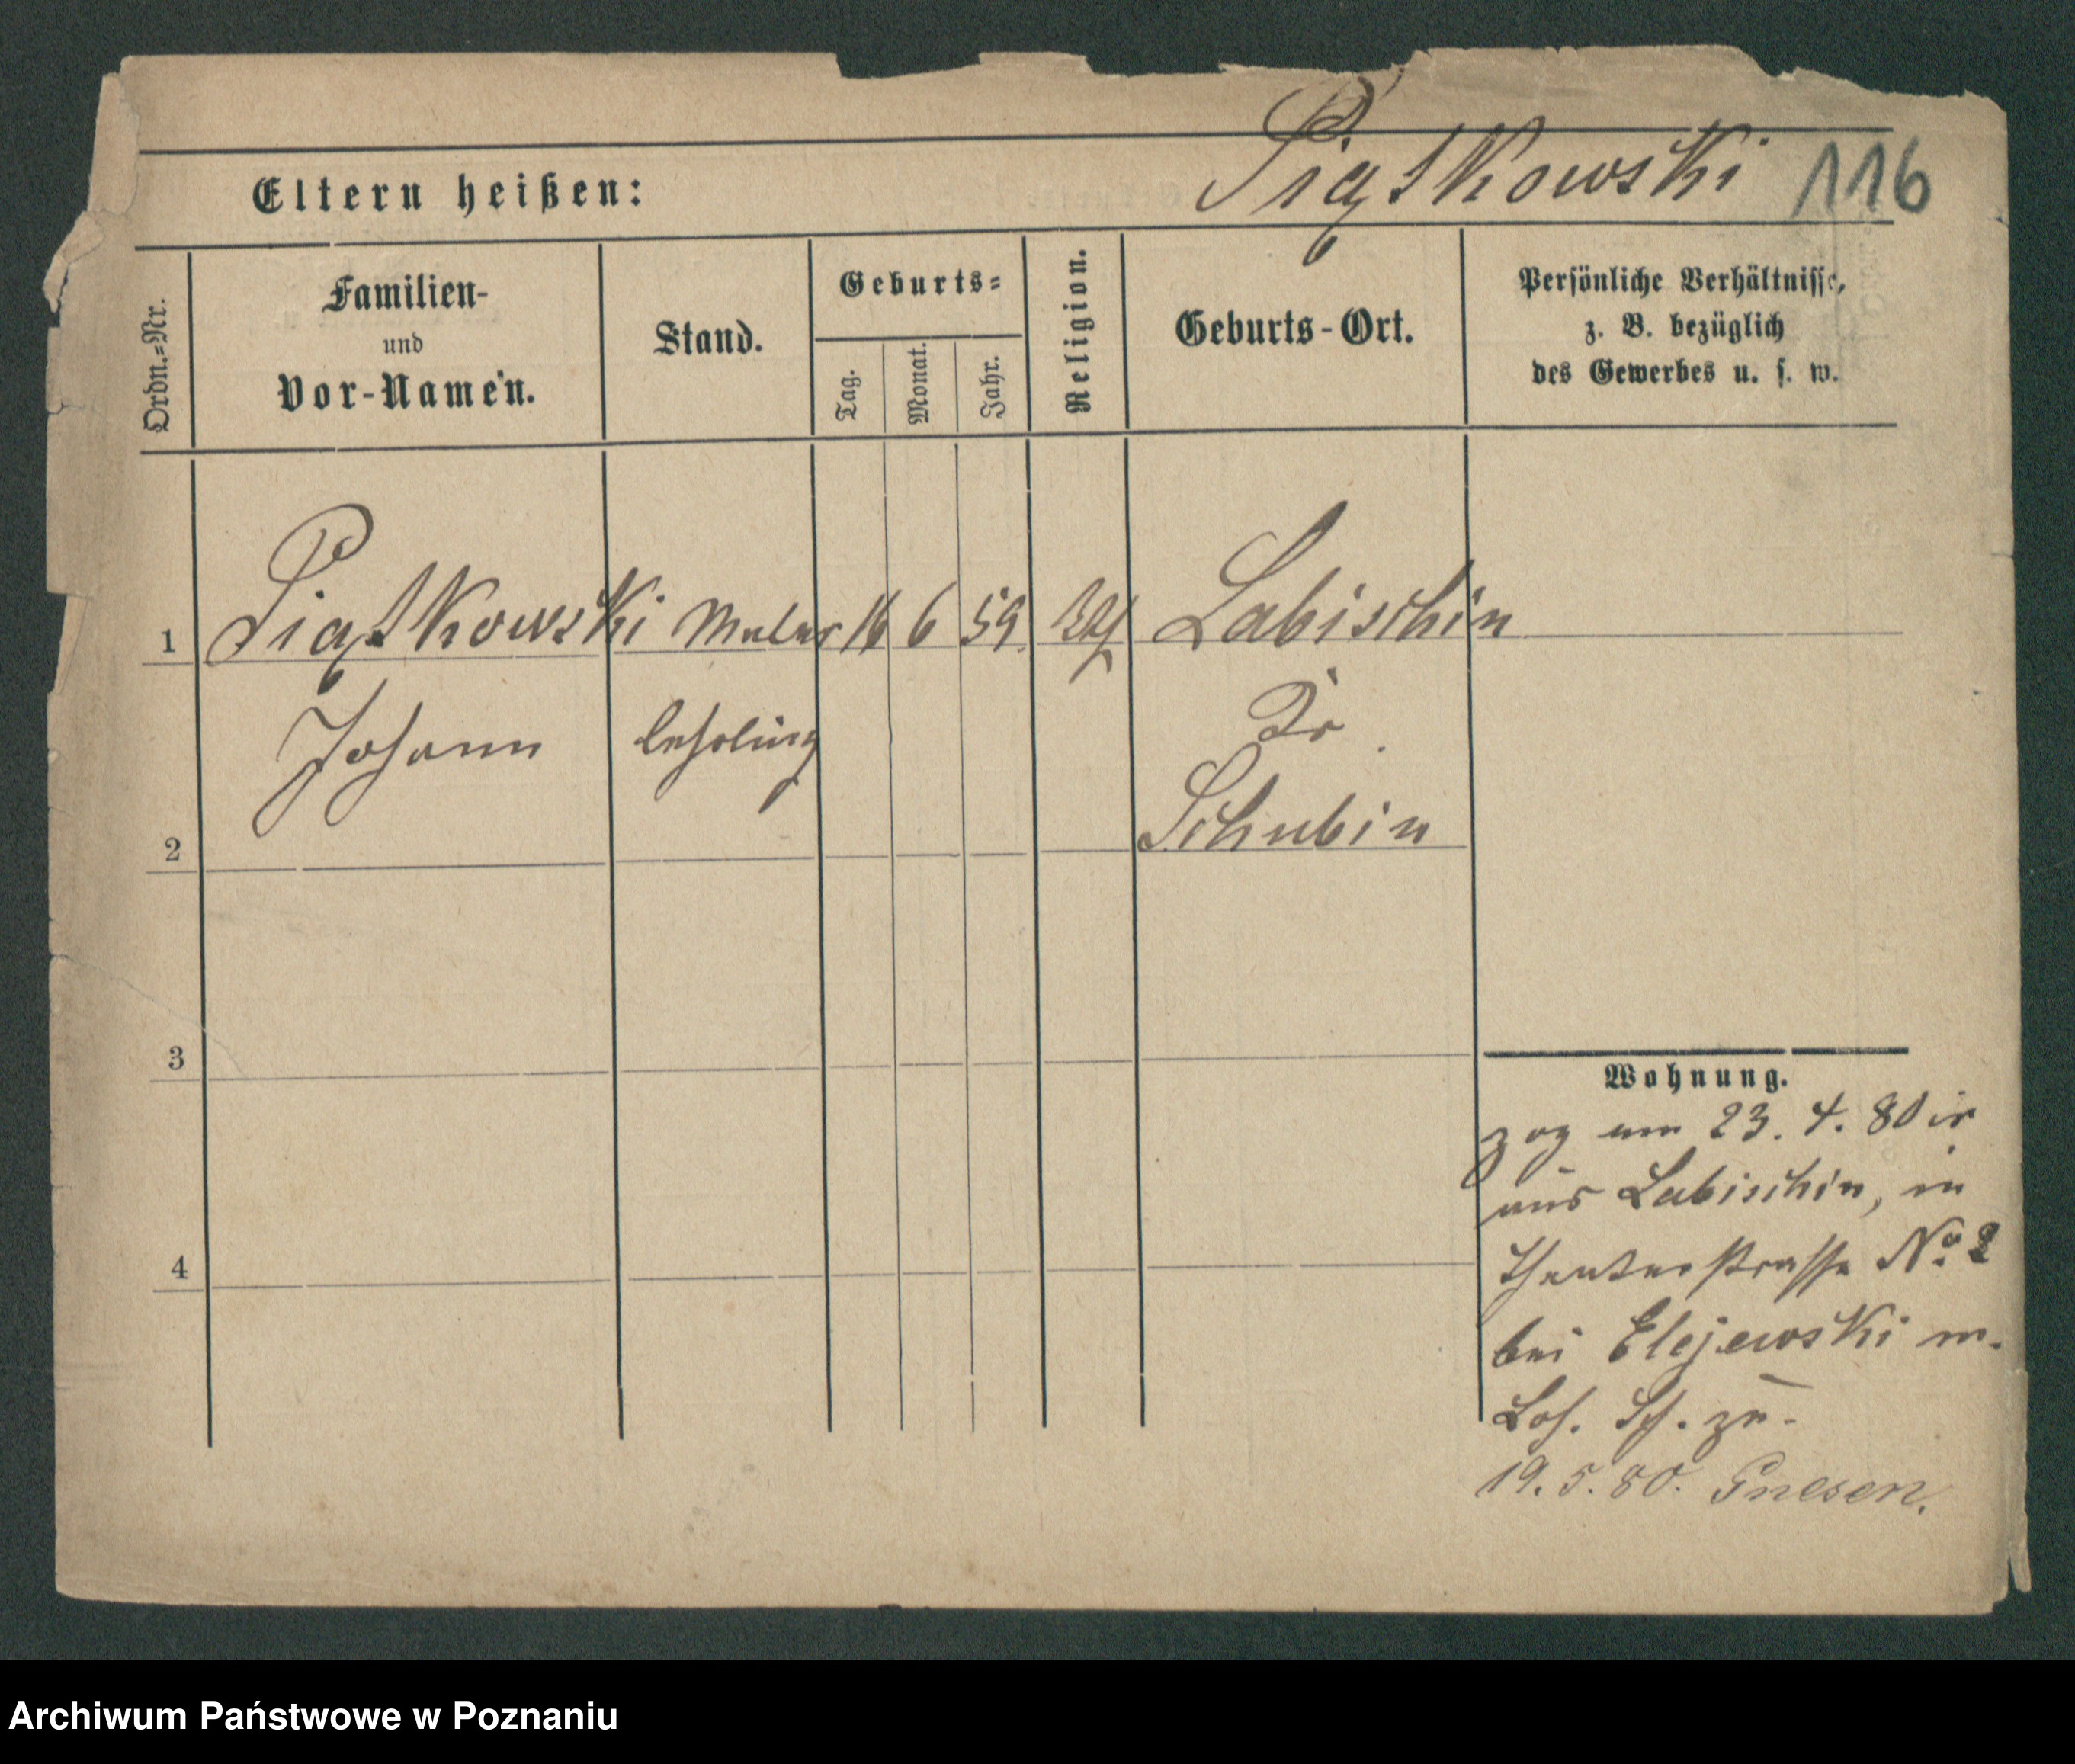 Piątkowski 116
Eltern heißen:
Ordn.=Nr.
Familien-
und
Vor-Namen.
Stand.
Geburts=
Tag.
Monat.
Jahr.
Religion.
Geburts-Ort.
Persönliche Verhältnisse,
z. B. bezüglich
des Gewerbes u. s. w.
1 Piątkowski Maler 16 6 59 Labischin
Johann lehrling Kr
2 Schubin
3
4
Wohnung.
zog am 23. 4. 80
aus Labischin, in
Theaterstrasse No 2
bei Elejewski
zu.
19. 5. 80. Gnesen.
Archiwum Państwowe w Poznaniu